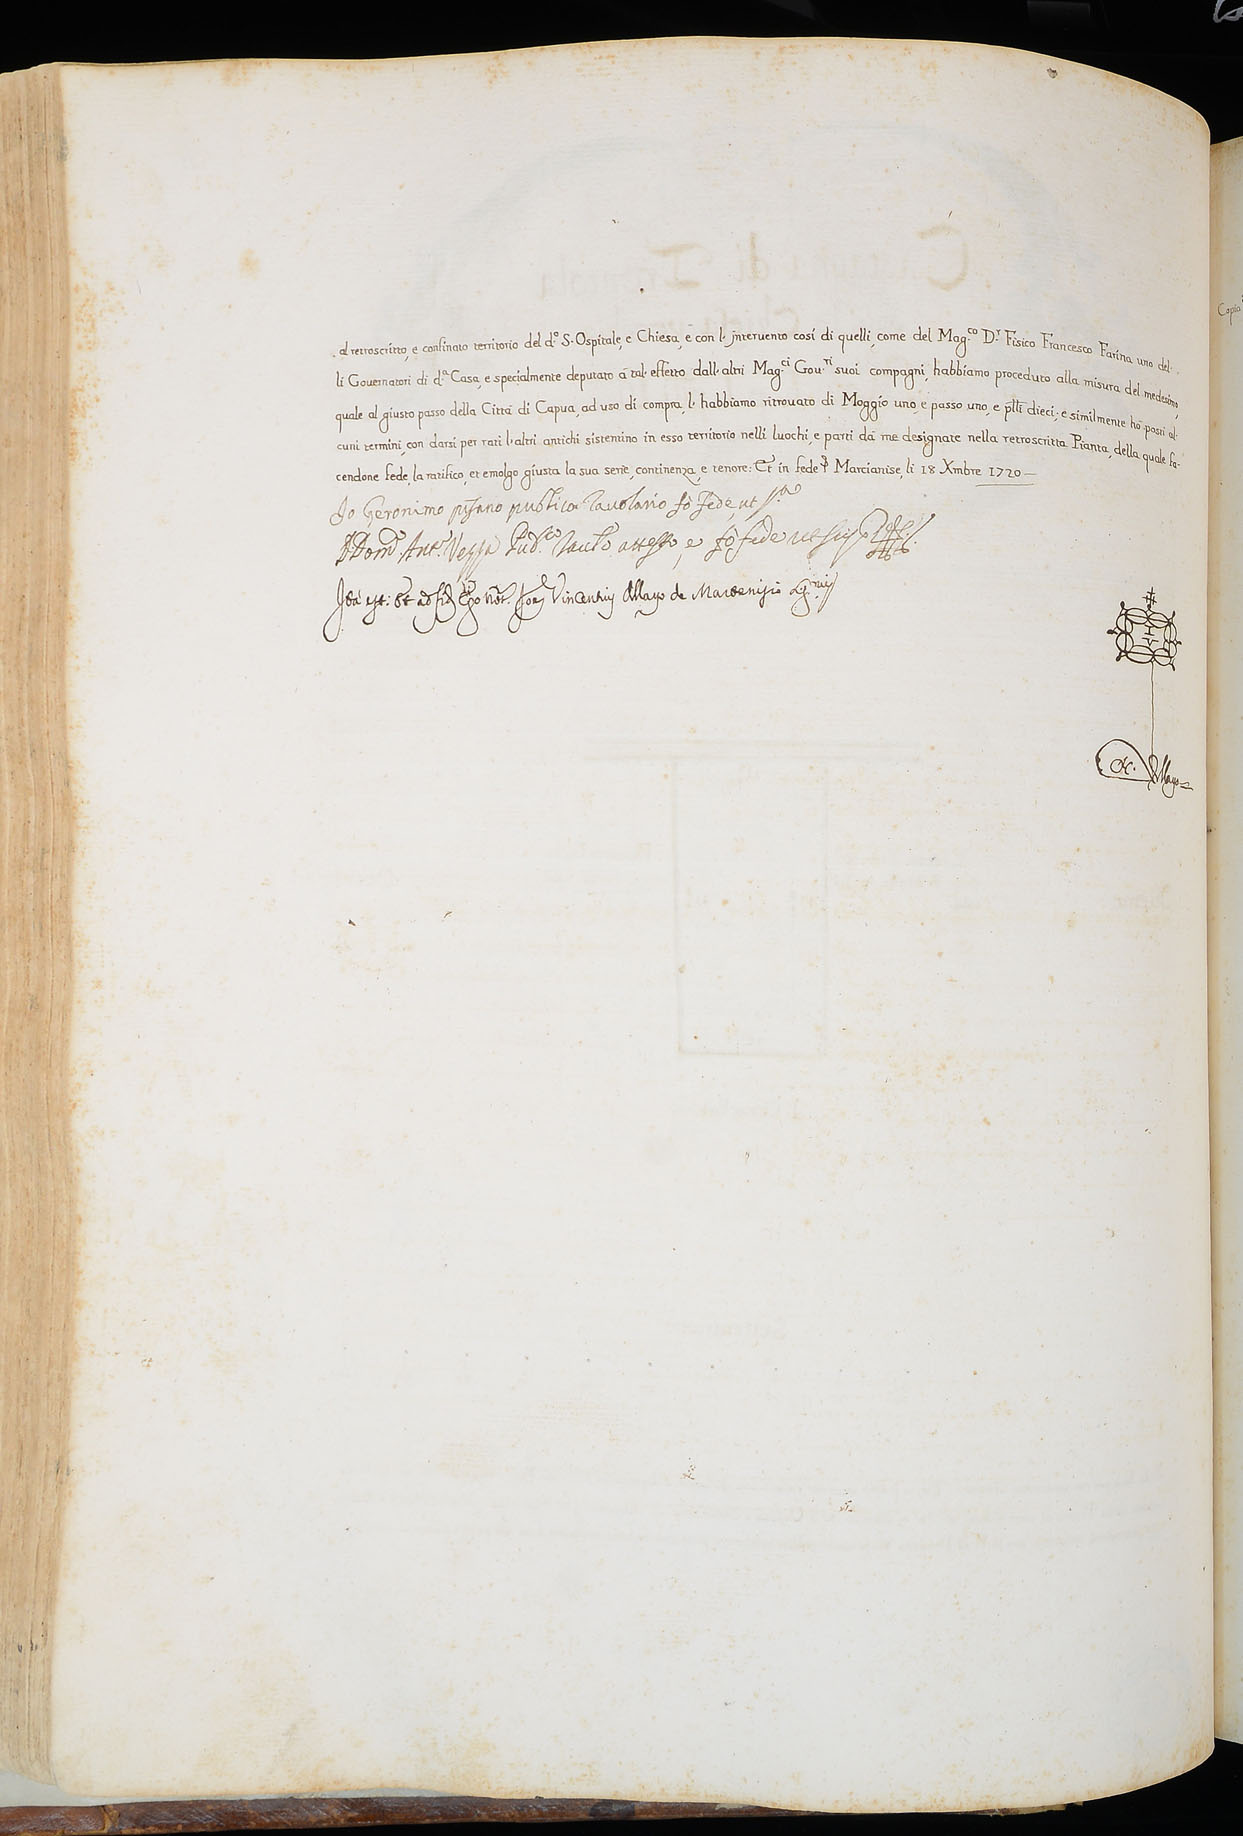 al retroscritto, e confinato territorio del d.º S. Ospitale, e Chiesa, e con l' jntervento così di quelli, come del Mag.co D.r Fisico Francesco Farina uno del-
li Governatori di d.ª Casa, e specialmente deputato à tal' effetto dall' altri Mag.ci Gou.ri suoi compagni, habbiamo proceduto alla misura del medesimo,
quale al giusto passo della Città di Capua, ad uso di compra, l' habbiamo ritrouato di Moggio uno, e passo uno, e p̃lli dieci; e similmente hò posti al-
cuni termini, con darsi per rati l' altri antichi sistentino in esso territorio nelli luochi, e parti dà me designate nella retroscritta Pianta, della quale fa-
cendone fede, la ratifico, et emolgo giusta la sua serie, continenza, e tenore: Et in fede Marcianise, li 18 Xmbre 1720
Io Geronimo pisano publico Tavolario fò fede, ut s.ª
Dom.º Ant.º Pub.co attesto, e fò fede ut
Ita est: Et ad fid. Ego Not. Vincentius Mayo de Marcenisio
I V
Mayo
Copia